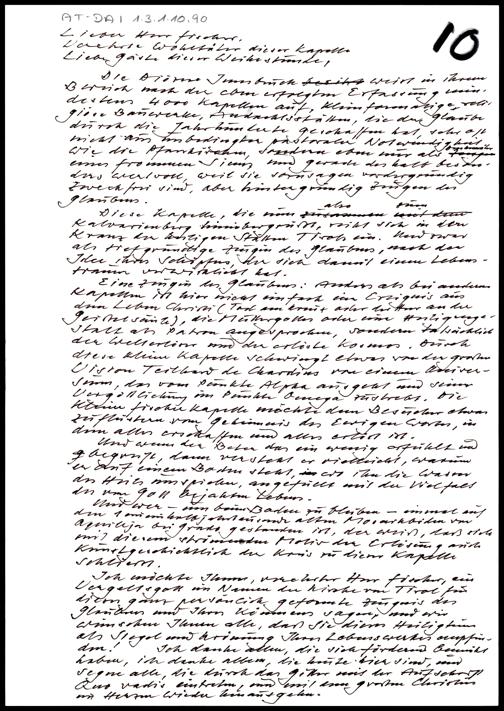 AT-DAI 1.3.1.10.90
10
Lieber Herr Fischer,
Verehrte Wohltäter dieser Kapelle
Liebe Gäste dieser Weihestunde,
Die Diözese Innsbruck besitzt weist in ihrem
Bereich nach der eben erfolgten Erfassung min-
destens 4000 Kapellen auf, kleinformatige reli-
giöse Bauwerke, Andachtsstätten, die der Glaube
durch die Jahrhunderte geschaffen hat, sehr oft
nicht aus unbedingter pastoraler Notwendigkeit
wie die Pfarrkirchen, sondern eben nur als
eines frommen Sinns und gerade deshalb beson-
ders wertvoll, weil sie sozusagen vordergründig
zweckfrei sind, aber hintergründig Zeugen des
Glaubens.
Diese Kapelle, die nun also zum
Kalvarienberg hinübergrüßt, reiht sich in den
Kranz der heiligen Stätten Tirols ein. Und zwar
als tiefgründige Zeugin des Glaubens, nach der
Idee ihres Schöpfers, der sich damit einen Lebens-
traum verwirklicht hat.
Eine Zeugin des Glaubens: Anders als bei anderen
Kapellen ist hier nicht einfach ein Ereignis aus
dem Leben Christi (Tod am Kreuz oder der Herr an der
Geißelsäule), die Muttergottes oder eine Heiligenge-
stalt als Patron angesprochen, sondern tatsächlich
der Welterlöser und der erlöste Kosmos. Durch
diese kleine Kapelle schwingt etwas von der großen
Vision Teilhard de Chardins von einem Univer-
sum, das vom Punkte Alpha ausgeht und seiner
Vergöttlichung im Punkte Omega zustrebt. Die
kleine Fischerkapelle möchte dem Besucher etwas
zuflüstern vom Geheimnis des Ewigen Wortes, in
dem alles erschaffen und alles erlöst ist.
Und wenn der Beter das ein wenig erfühlt und
begreift, dann versteht er vielleicht, warum
er auf einem Boden steht, wo ihn die Wasser
des Heils umspielen, angefüllt mit der Vielfalt
des von Gott bejahten Lebens.
Und wer - um beim Boden zu bleiben - einmal auf
den Mosaikböden von
Aquileja bei Grado gestanden ist, der weiß, daß sich
mit diesem Motiv der Erlösung auch
kunstgeschichtlich der Kreis zu dieser Kapelle
schließt.
Ich möchte Ihnen, verehrter Herr Fischer, ein
Vergeltsgott im Namen der Kirche von Tirol für
dieses ganz persönlich geformte Zeugnis des
Glaubens und Ihres Könnens sagen, und wir
wünschen Ihnen alle, daß Sie dieses Heiligtum
als Siegel und Krönung Ihres Lebenswerkes empfin-
den! Ich danke allen, die sich fördernd bemüht
haben, ich danke allen, die heute hier sind, und
segne alle, die durch das Gitter mit der Aufschrift
Quo vadis eintreten, und mit einem großen Christus
im Herzen wieder hinausgehen.